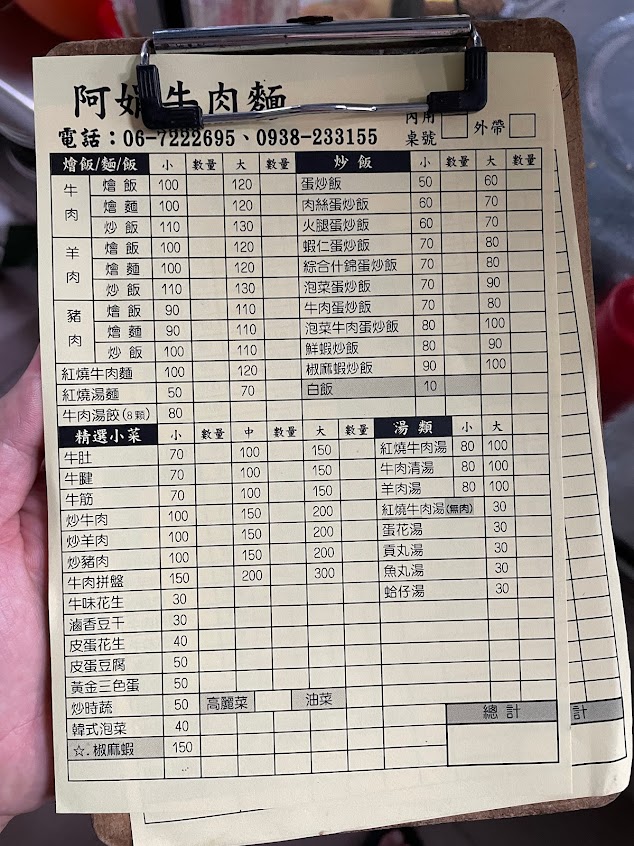 阿娟牛肉麵
內用 桌號 外帶
電話：06-7222695、0938-233155
燴飯/麵/飯 小 數量 大 數量
牛肉 燴飯 100 120
燴麵 100 120
炒飯 110 130
羊肉 燴飯 100 120
燴麵 100 120
炒飯 110 130
豬肉 燴飯 90 110
燴麵 90 110
炒飯 100 110
紅燒牛肉麵 100 120
紅燒湯麵 50 70
牛肉湯餃(8顆) 80
炒飯 小 數量 大 數量
蛋炒飯 50 60
肉絲蛋炒飯 60 70
火腿蛋炒飯 60 70
蝦仁蛋炒飯 70 80
綜合什錦蛋炒飯 70 80
泡菜蛋炒飯 70 90
牛肉蛋炒飯 70 80
泡菜牛肉蛋炒飯 80 100
鮮蝦炒飯 80 90
椒麻蝦炒飯 90 100
白飯 10
精選小菜 小 數量 中 數量 大 數量
牛肚 70 100 150
牛腱 70 100 150
牛筋 70 100 150
炒牛肉 100 150 200
炒羊肉 100 150 200
炒豬肉 100 150 200
牛肉拼盤 150 200 300
牛味花生 30
滷香豆干 30
皮蛋花生 40
皮蛋豆腐 50
黃金三色蛋 50
炒時蔬 50 高麗菜 油菜
韓式泡菜 40
☆.椒麻蝦 150
湯類 小 大
紅燒牛肉湯 80 100
牛肉清湯 80 100
羊肉湯 80 100
紅燒牛肉湯(無肉) 30
蛋花湯 30
貢丸湯 30
魚丸湯 30
蛤仔湯 30
總計
計